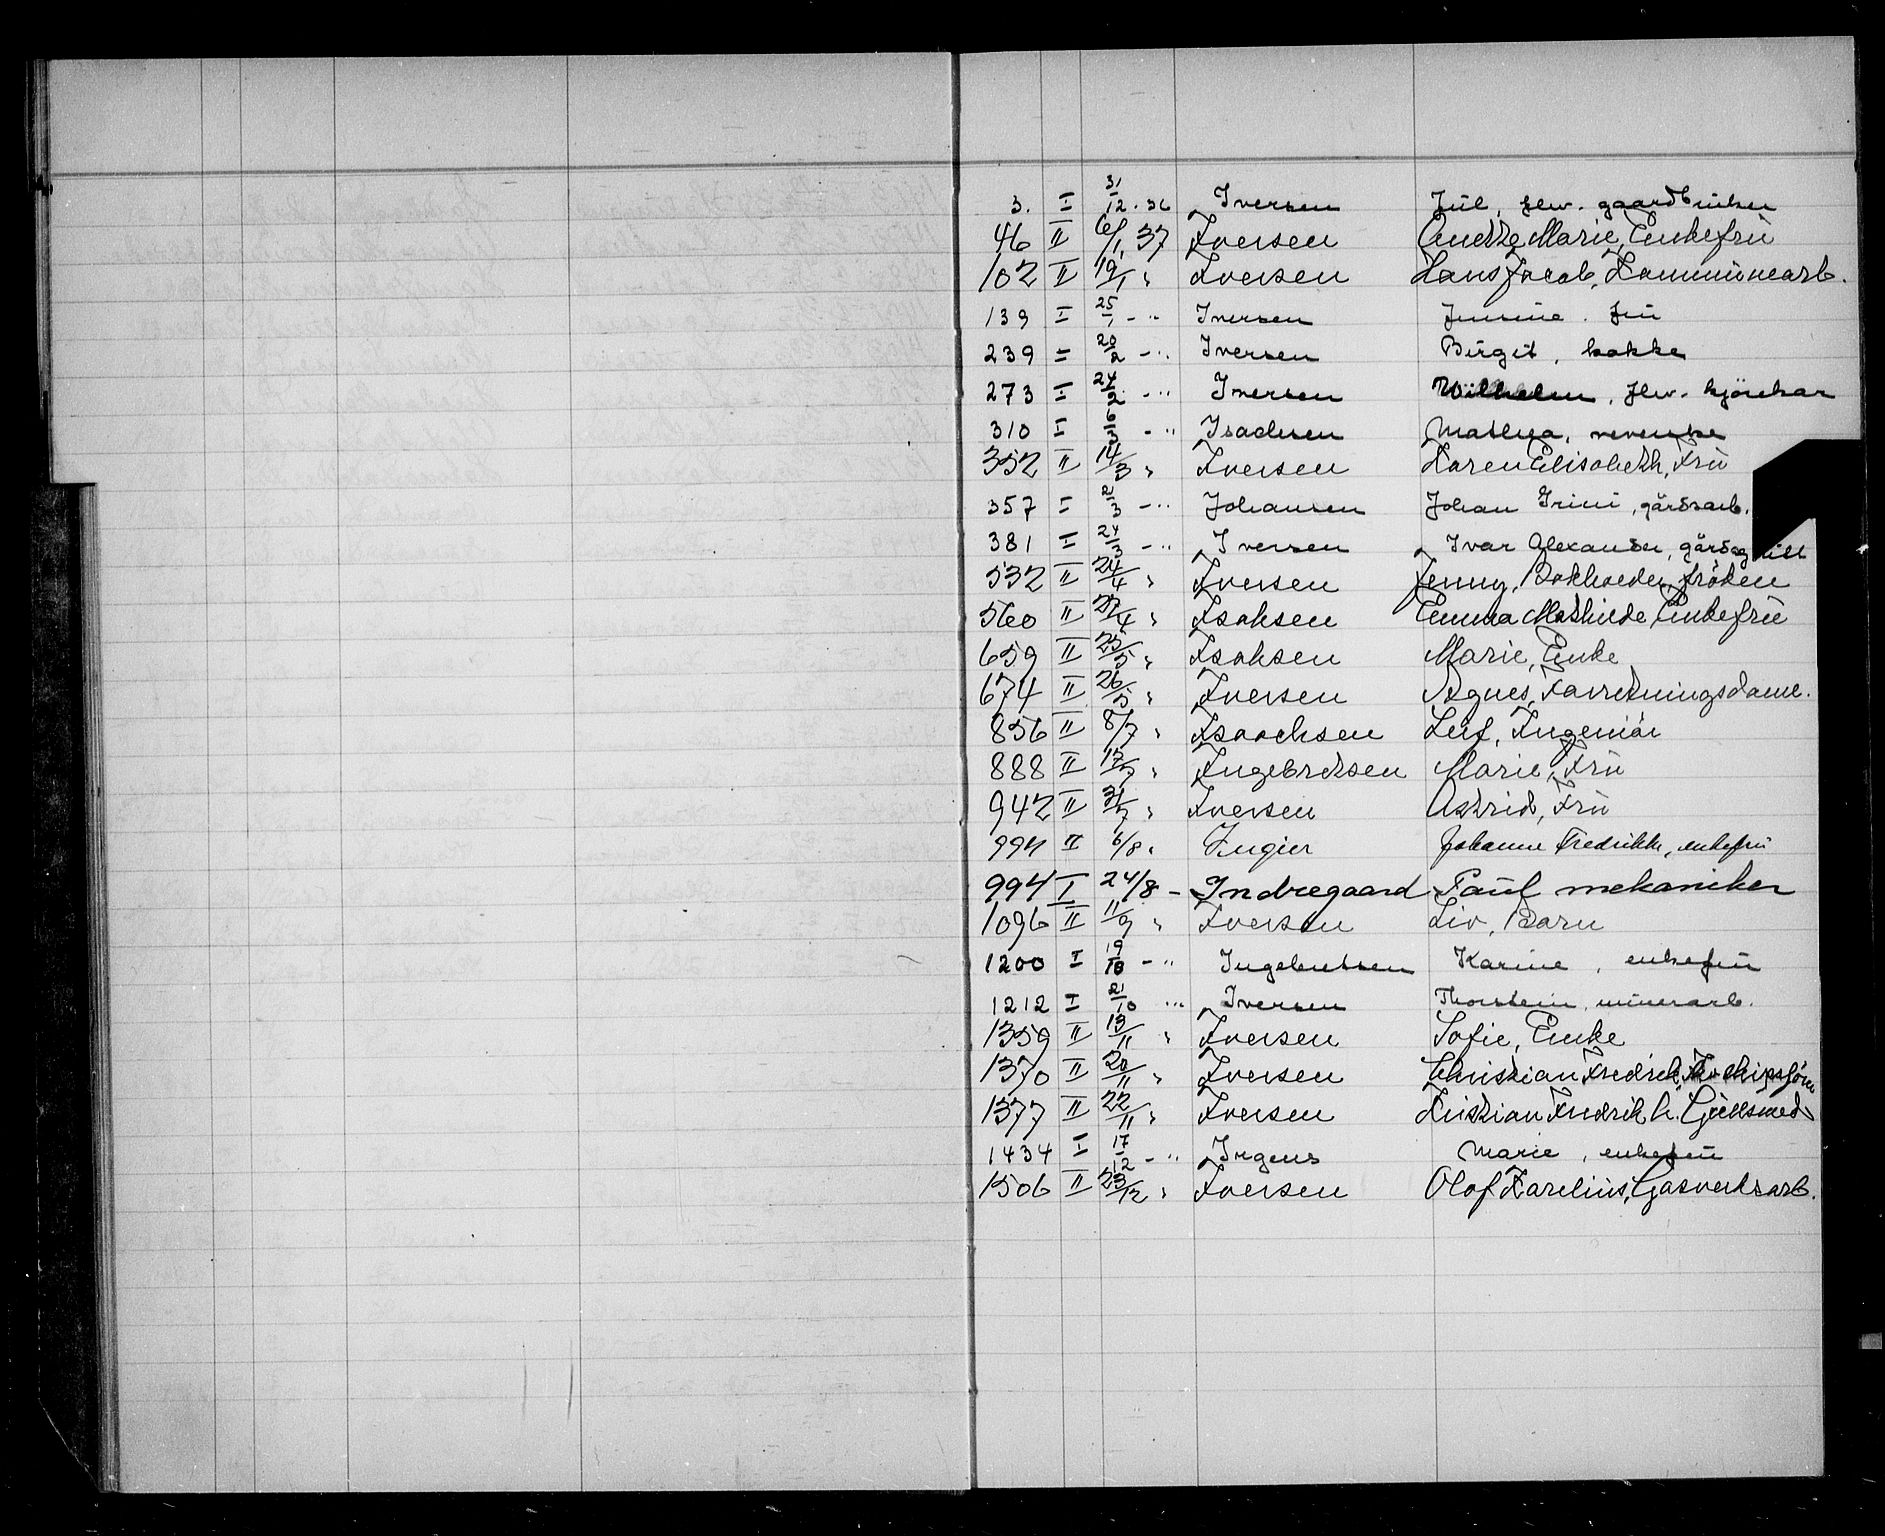 3. I 31/12.36 Iversen Jul, flw. gaardbruker
46 II 6/1 37 Iversen Anette Marie, Enkefrü
102 II 19/1 " Iversen Hans Jacob, Kommünearb.
139 I 25/1 - " Iversen Jensine. frü
239 I 20/2 - " Iversen Birgit, kokke
273 I 24/2 - " Iversen Wilhelm, flw. kjörekar
310 I 6/3 - " Isachsen Mathea,
352 II 14/3 " Iversen Karen Elisabeth, Frü
357 I 21/3 - " Johansen Johan Irini, gårdsarb.
381 I 24/3 - " Iversen Ivar Alexander,
532 II 24/4 " Iversen Jenny, Bokholder, fröken
560 II 27/4 " Isaksen Emma Mathilde, Enkefrü
659 II 25/5 " Isaksen Marie, Enke
674 II 26/5 " Iversen Agnes, Forretningsdame.
856 II 8/7 " Isaachsen Leif, Ingeniör
888 II 17/7 " Ingebretsen Marie, Frü
942 II 31/7 " Iversen Astrid, Frü
994 II 6/8 " Ingier Johanne Fredrikke, enkefrü
994 I 24/8 - Indregaard Paul mekaniker
1096 II 11/9 " Iversen Liv, Barn
1200 I 19/10 - " Ingebretsen Karine, enkefrü
1212 I 21/10 " Iversen Thorstein, minerarb.
1359 II 13/11 " Iversen Sofie, Enke
1370 II 20/11 " Iversen Christian Fredrik,
1377 II 22/11 " Iversen Kristian Fredrik C. Güllsmed
1434 I 17/12 - " Irgens Marie, enkefrü
1506 II 23/12 " Iversen Olof Karelius, Gasverksarb.